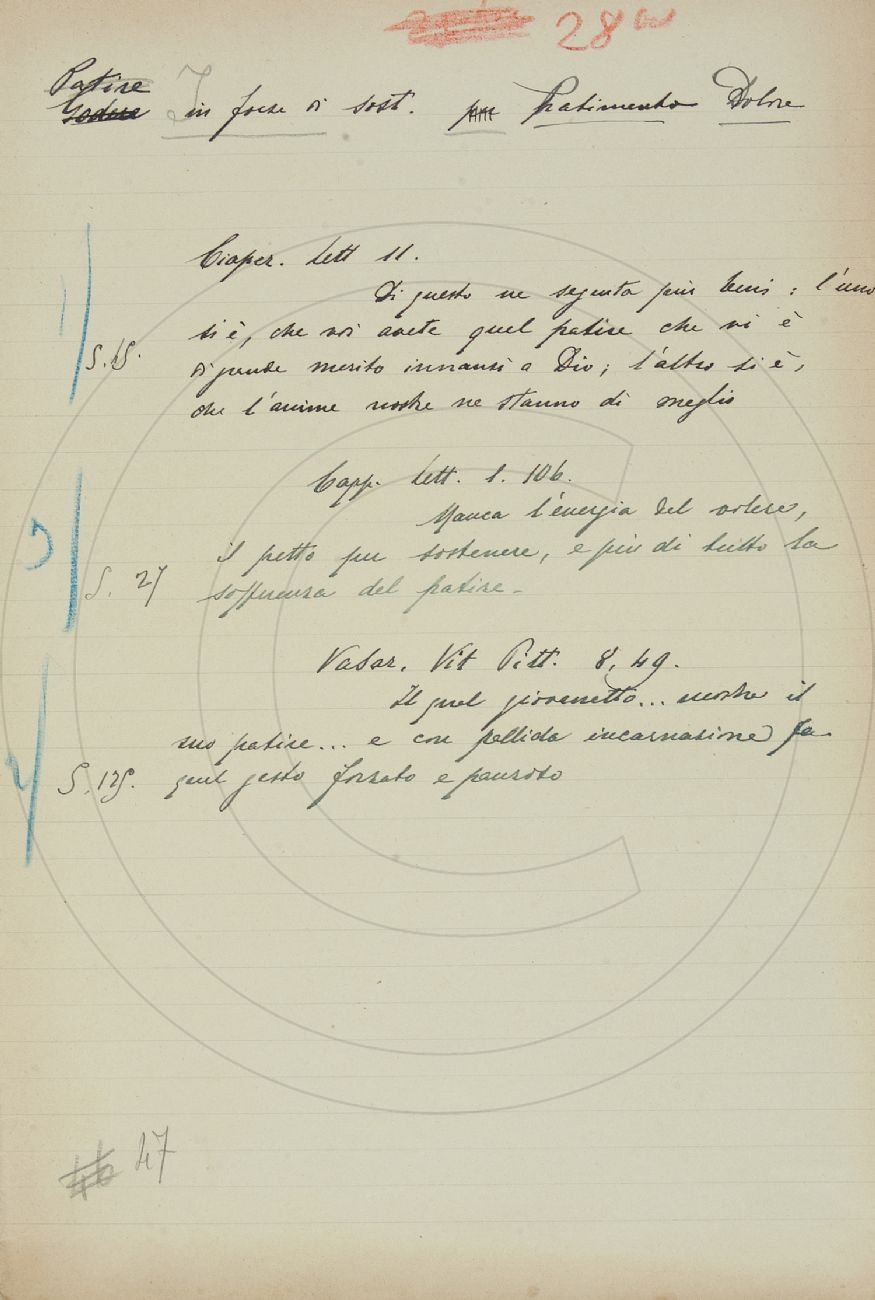 28
Patire
Godere in forza di sost. Patimento Dolore
Ciaper. Lett 11.
Di questo ne seguita più beni: l'uno
si è, che voi avete quel patire che vi è
di grande merito innanzi a Dio; l'altro si è,
che l'anime nostre ne stanno di meglio
Capp. Lett. 1. 106.
Manca l'energia del volere,
il petto per sostenere, e più di tutto la
S. 27 sofferenza del patire.
Vasar. Vit Pitt. 8, 49.
Il quel giovenetto... mostra il
suo patire... e con pallida incarnazione fa
S. 125. quel gesto forzato e pauroso
47